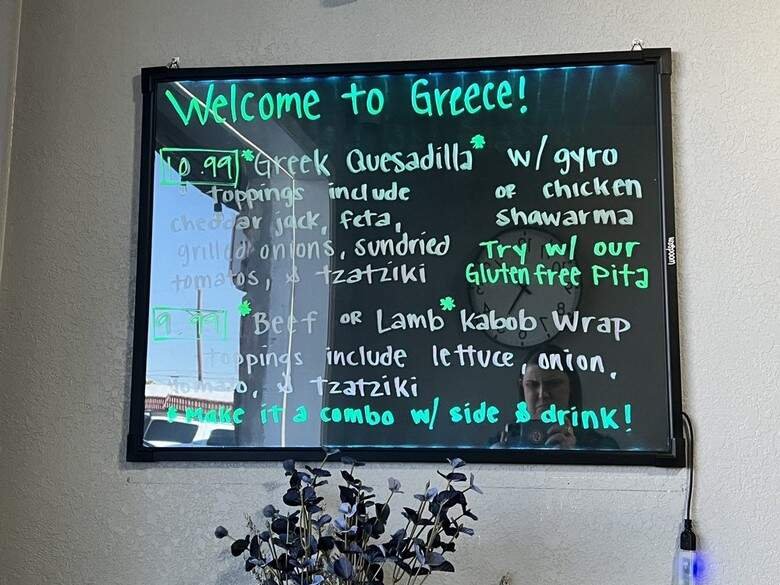 Welcome to Greece!
10.99 *Greek Quesadilla* w/ gyro
toppings include or chicken
cheddar jack, feta, shawarma
grilled onions, sundried Try w/ our
tomatos, & tzatziki Gluten free Pita
9.99 *Beef or Lamb* Kabob Wrap
toppings include lettuce, onion,
tomato, & tzatziki
* make it a combo w/ side & drink!
woodsam